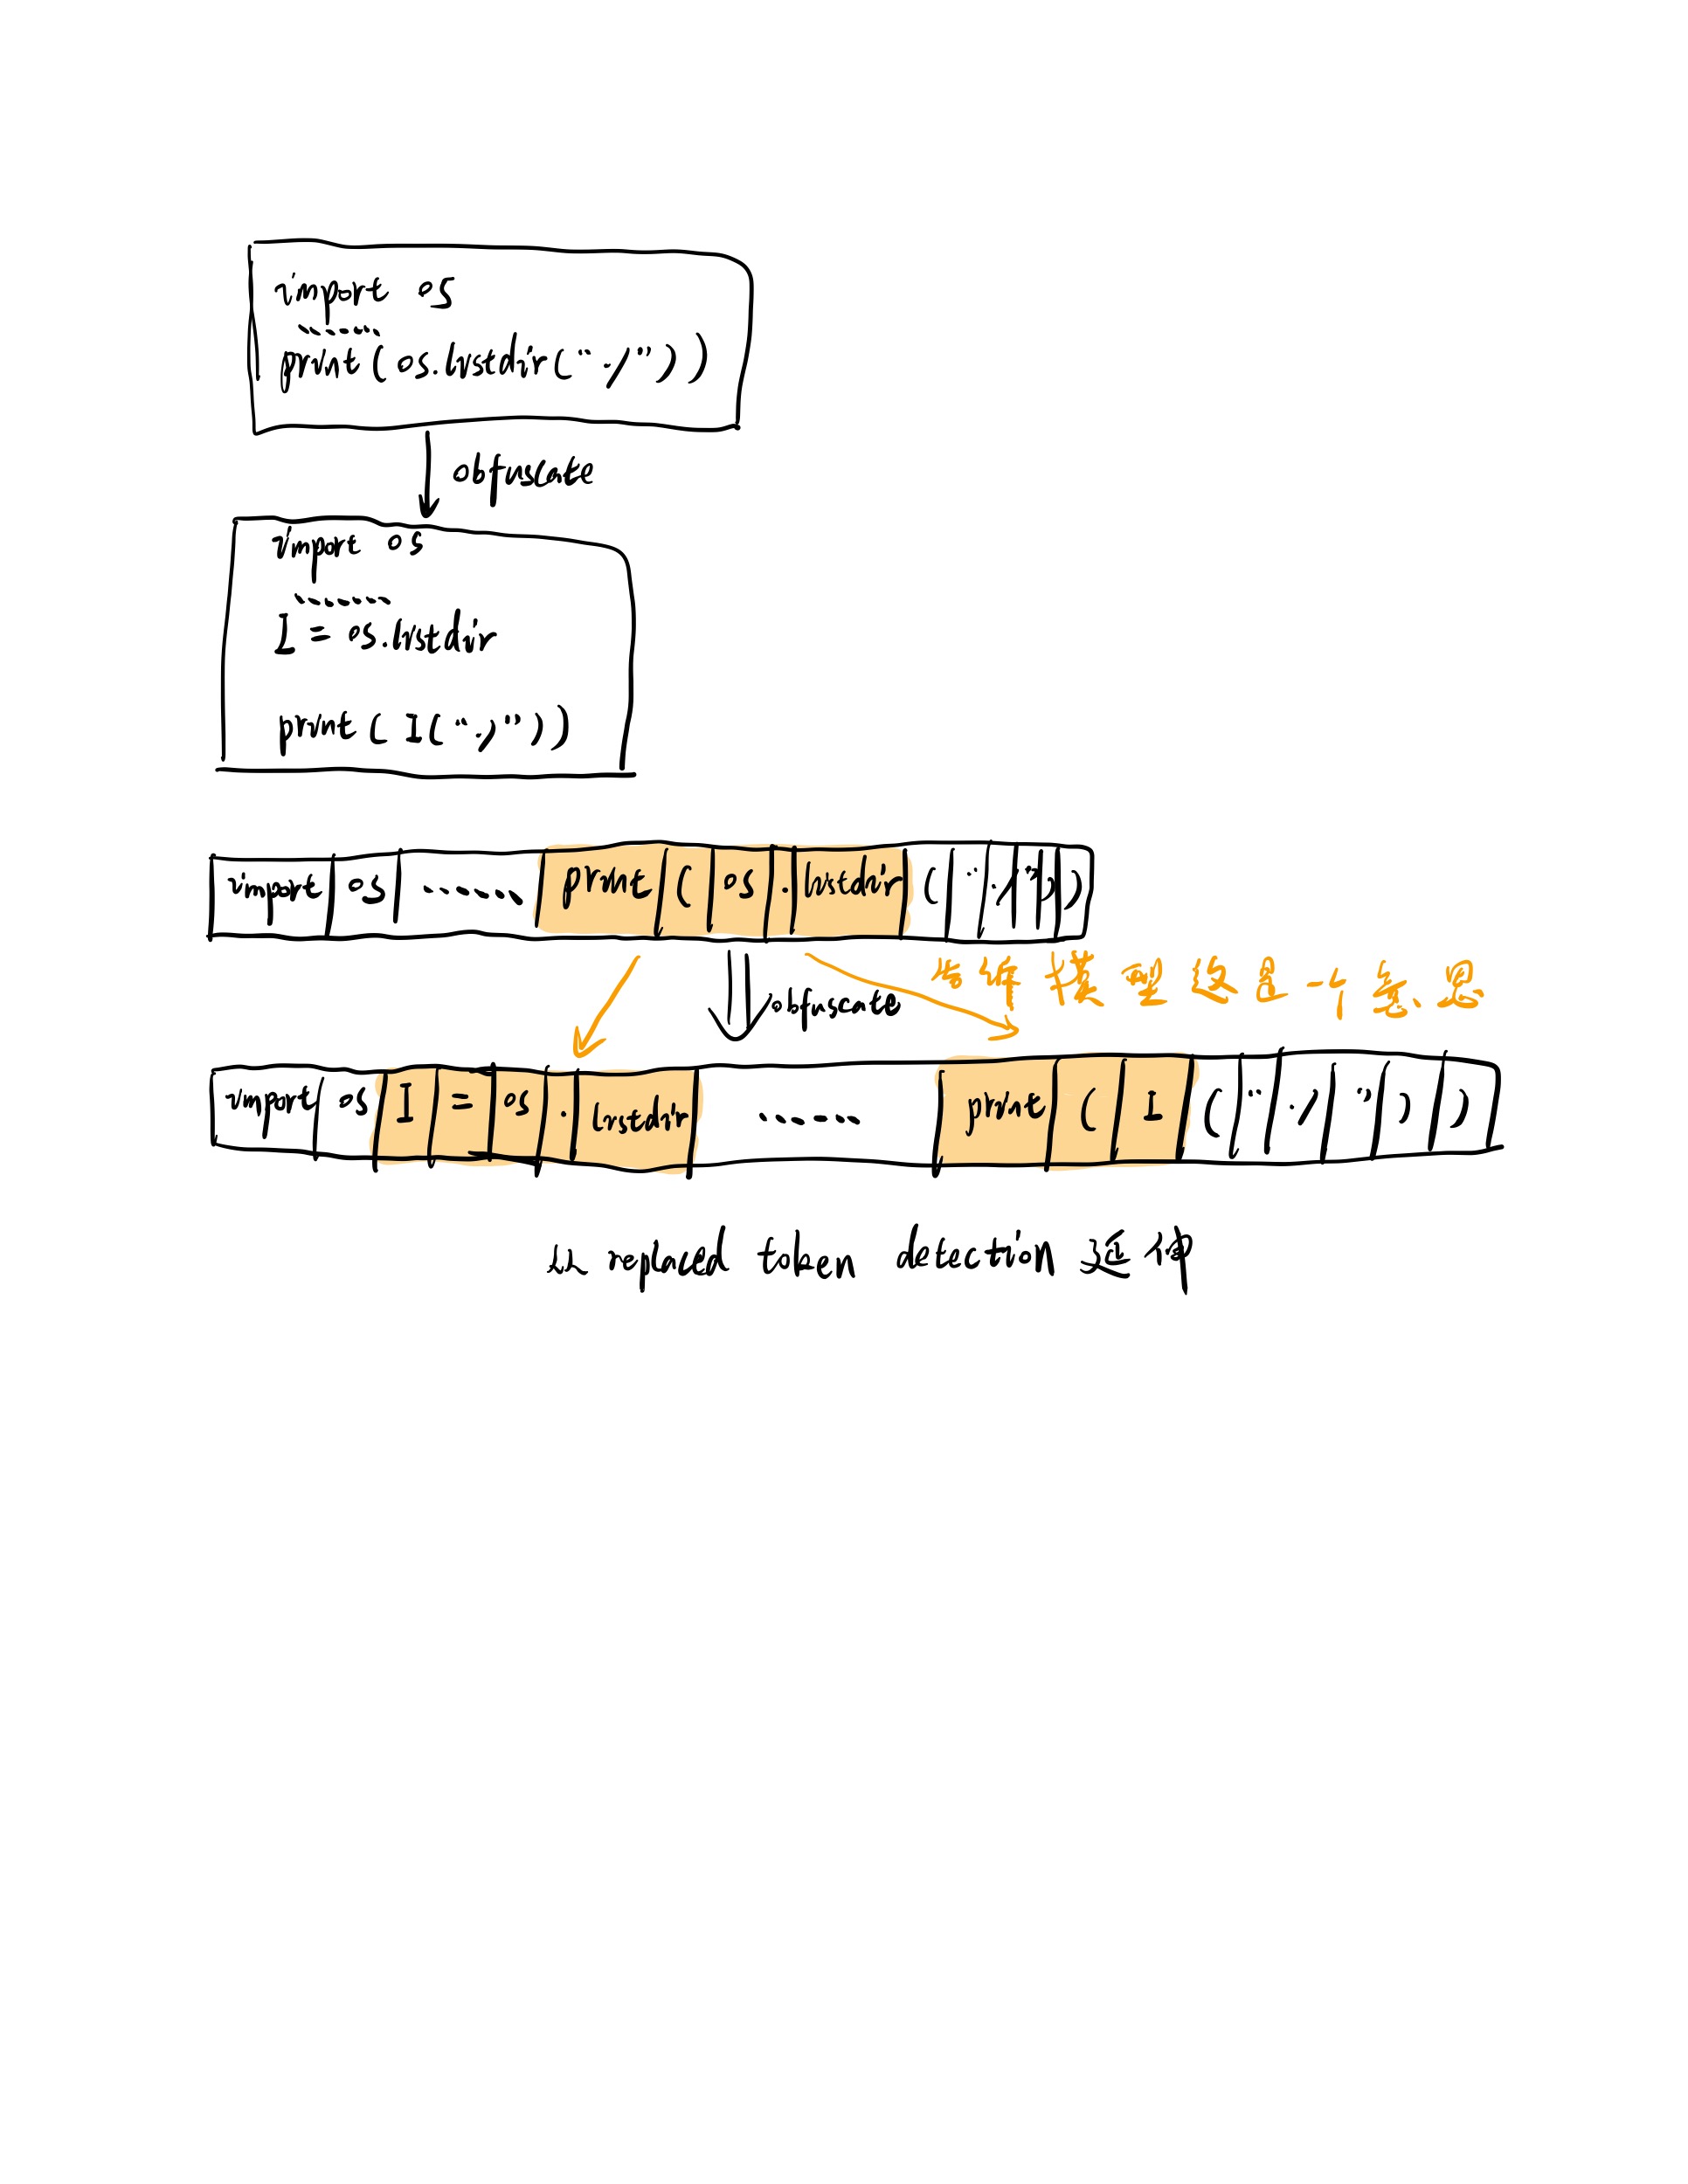 import os
......
print(os.listdir("./"))
obfuscate
import os
......
I = os.listdir
print( I("./"))
import os ...... print ( os . listdir ( " ./ " ) )
obfuscate
告诉模型这是一个意思
import os I = os . listdir ...... print ( I ( " ./ " ) )
从 replaced token detection 延伸